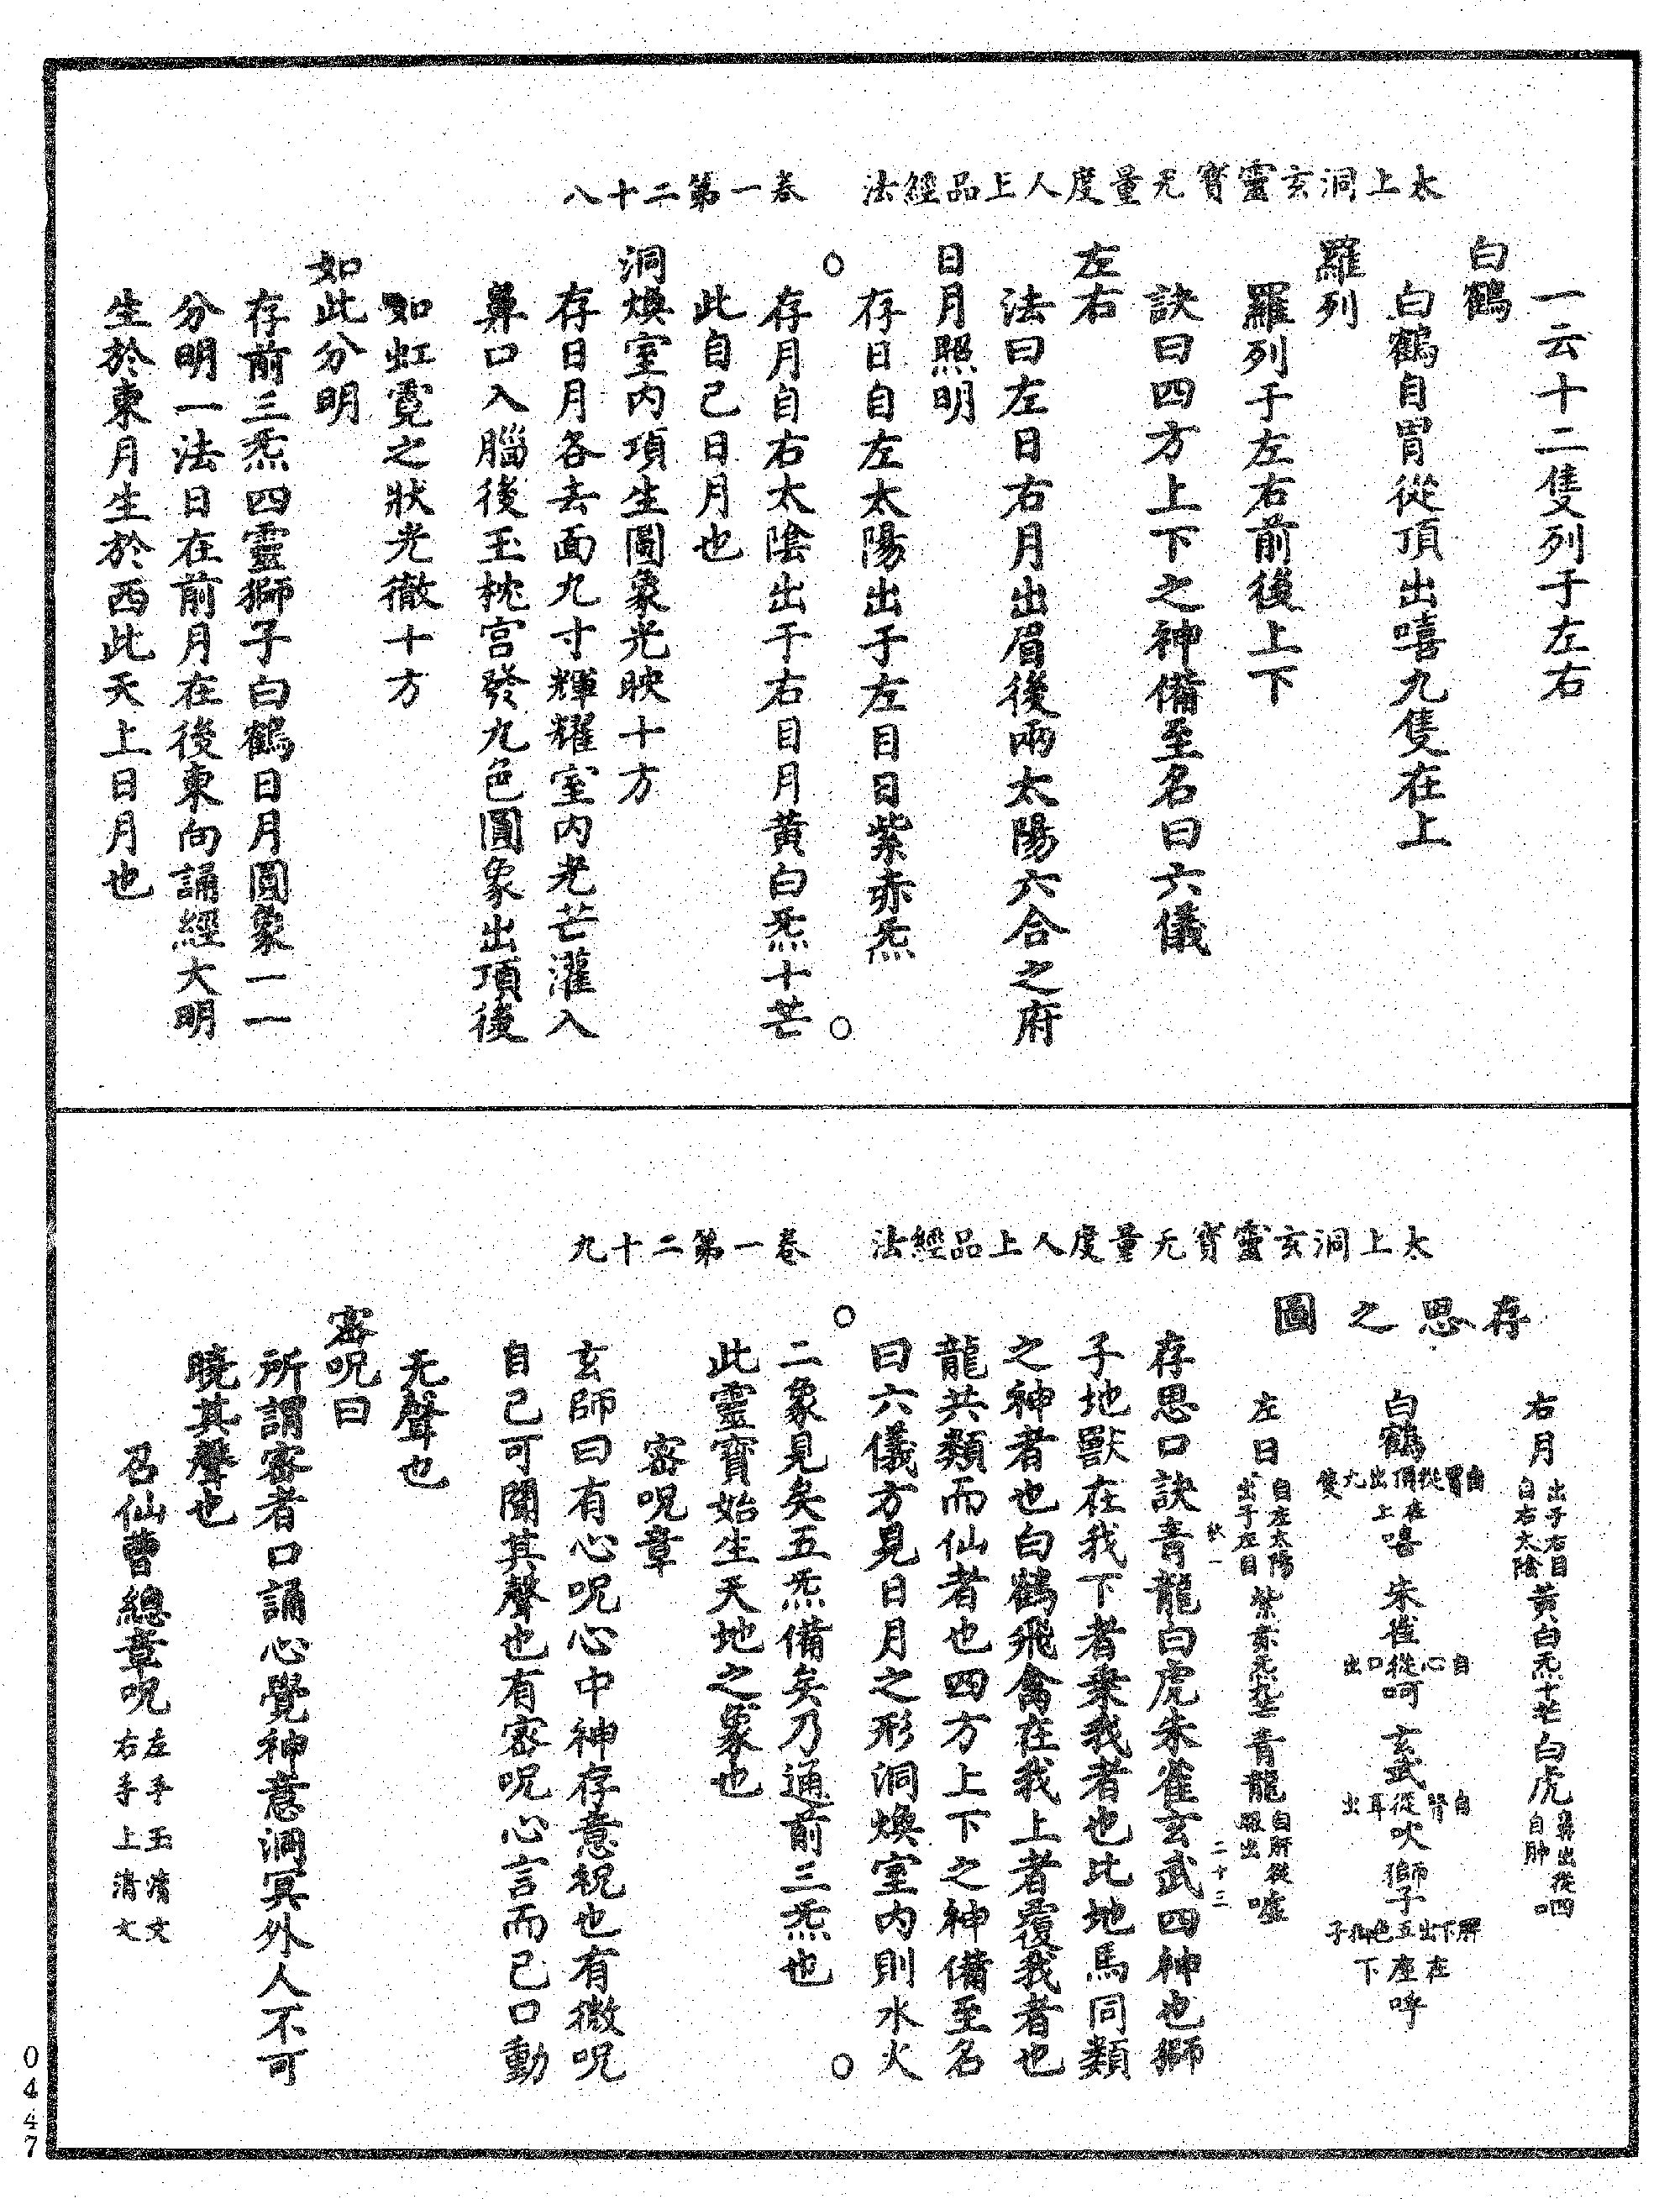 太上洞玄靈寶无量度人上品經法　卷一第二十八
一云十二隻列于左右
白鶴
白鶴自胃從頂出嘻九隻在上
羅列
羅列于左右前後上下
訣曰四方上下之神備至名曰六儀
左右
法曰左日右月出眉後兩太陽六合之府
日月照明
存日自左太陽出于左目日紫赤炁
○　○
存月自右太陰出于右目月黃白炁十芒
此自己日月也
洞煥室內項生圓象光映十方
存日月各去面九寸輝耀室內光芒灌入
鼻口入腦後玉枕宮發九色圓象出項後
如虹霓之狀光徹十方
如此分明
存前三炁四靈獅子白鶴日月圓象一一
分明一法日在前月在後東向誦經大明
生於東月生於西此天上日月也
太上洞玄靈寶无量度人上品經法　卷一第二十九
存思之圖
右月
出于右目
自右太陰
黃白炁十芒
白虎
鼻出從呬
自肺
白鶴
自胃從頂出九隻
在上
嘻
朱雀
自心從口出
呵
玄武
自腎從耳出
吹
獅子
脾下出五色獅子
在座下
呼
左日
自左太陽
出于左目
紫赤炁九芒
青龍
自肝從
眼出
噓
二十三
存思口訣青龍白虎朱雀玄武四神也獅
子地獸在我下者乘我者也比地馬同類
之神者也白鶴飛禽在我上者覆我者也
龍共類而仙者也四方上下之神備至名
曰六儀方見日月之形洞煥室內則水火
○　○
二象見矣五炁備矣乃通前三炁也
此靈寶始生天地之象也
密呪章
玄師曰有心呪心中神存意祝也有微呪
自己可聞其聲也有密呪心言而已口動
无聲也
密呪曰
所謂密者口誦心覺神意洞冥外人不可
曉其聲也
召仙曹總章呪
左手玉清文
右手上清文
0447